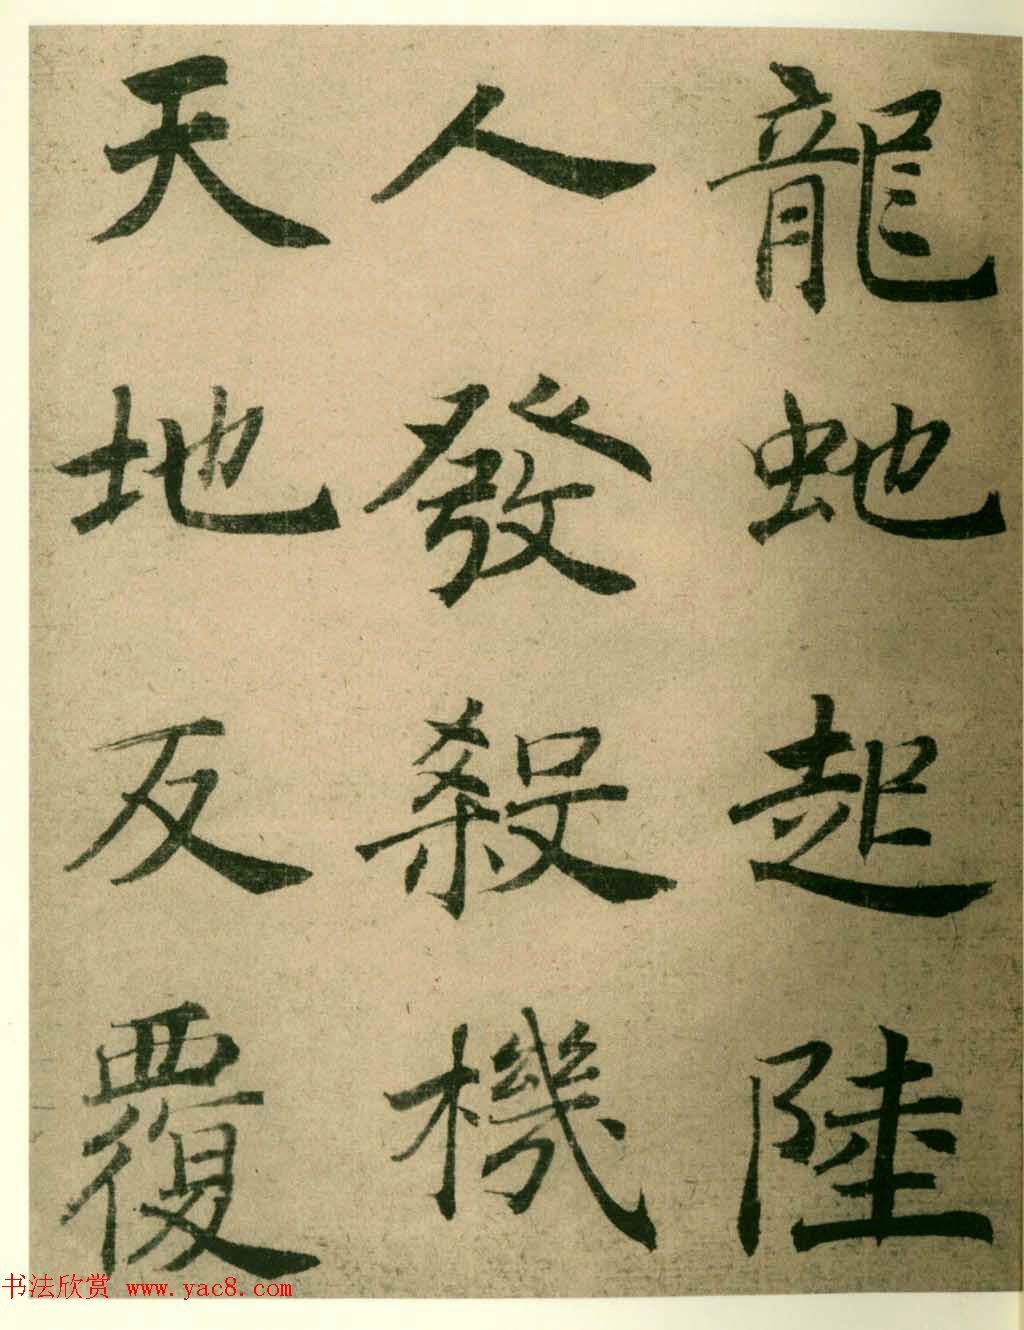 龍虵起陸
人發殺機
天地反覆
书法欣赏 www.yac8.com